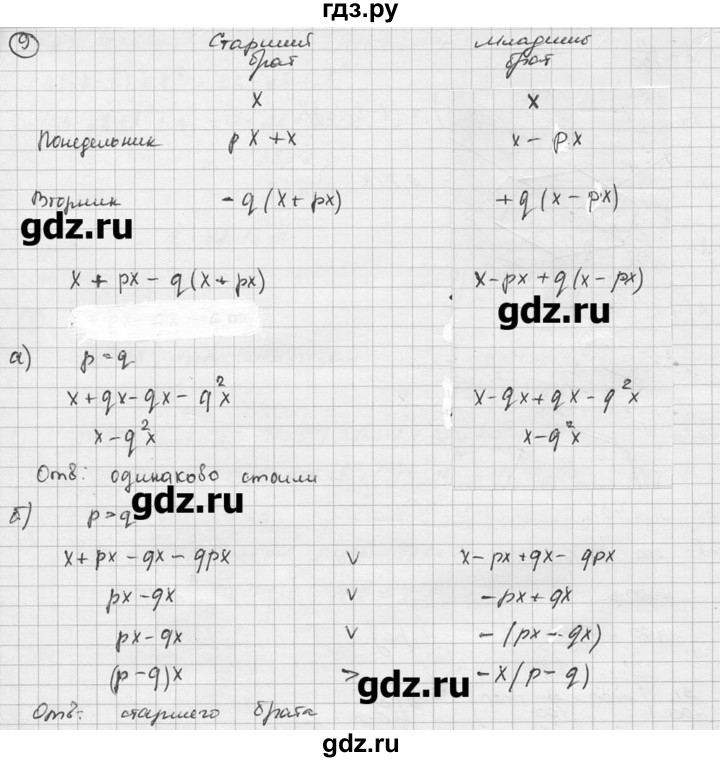 гдз.ру
9 Старший брат Младший брат
x x
Понедельник px + x x - px
Вторник - q(x + px) + q(x - px)
gdz.ru
x + px - q(x + px) x - px + q(x - px)
gdz.ru
а) p = q
x + qx - qx - q²x x - qx + qx - q²x
x - q²x x - q²x
Отв: одинаково стоили
gdz.ru
б) p > q
x + px - qx - qpx V x - px + qx - qpx
px - qx V - px + qx
px - qx V - (px - qx)
(p - q)x > - x(p - q)
gdz.ru
Отв: старшего брата
gdz.ru